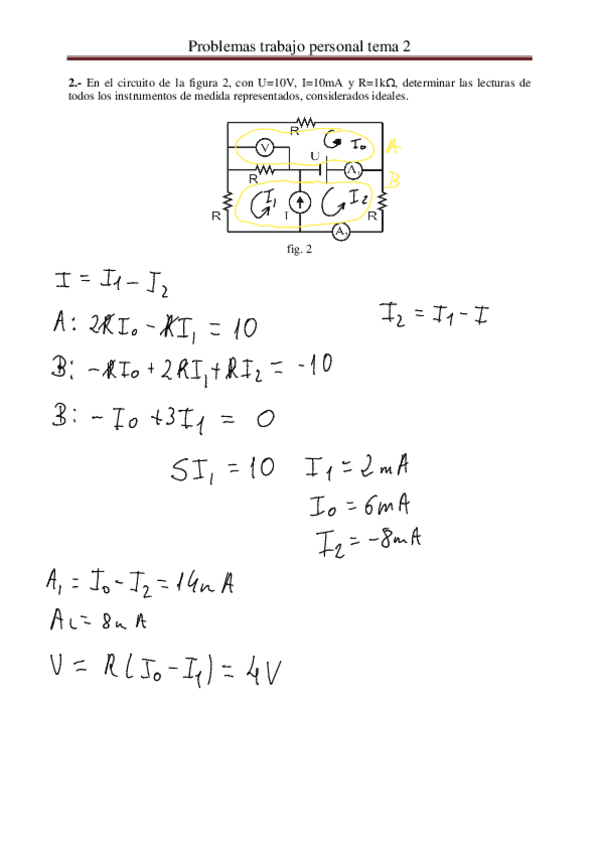 Problemas trabajo personal tema 2
2.- En el circuito de la figura 2, con U=10V, I=10mA y R=1kΩ, determinar las lecturas de
todos los instrumentos de medida representados, considerados ideales.
R
I₀
A
V
U
A₁
B
R
I₁
I₂
R
I
R
A₂
fig. 2
I = I₁ - I₂
A: 2RI₀ - RI₁ = 10
I₂ = I₁ - I
B: -RI₀ + 2RI₁ + RI₂ = -10
B: - I₀ + 3I₁ = 0
5I₁ = 10 I₁ = 2mA
I₀ = 6mA
I₂ = -8mA
A₁ = I₀ - I₂ = 14mA
A₂ = 8mA
V = R(I₀ - I₁) = 4V